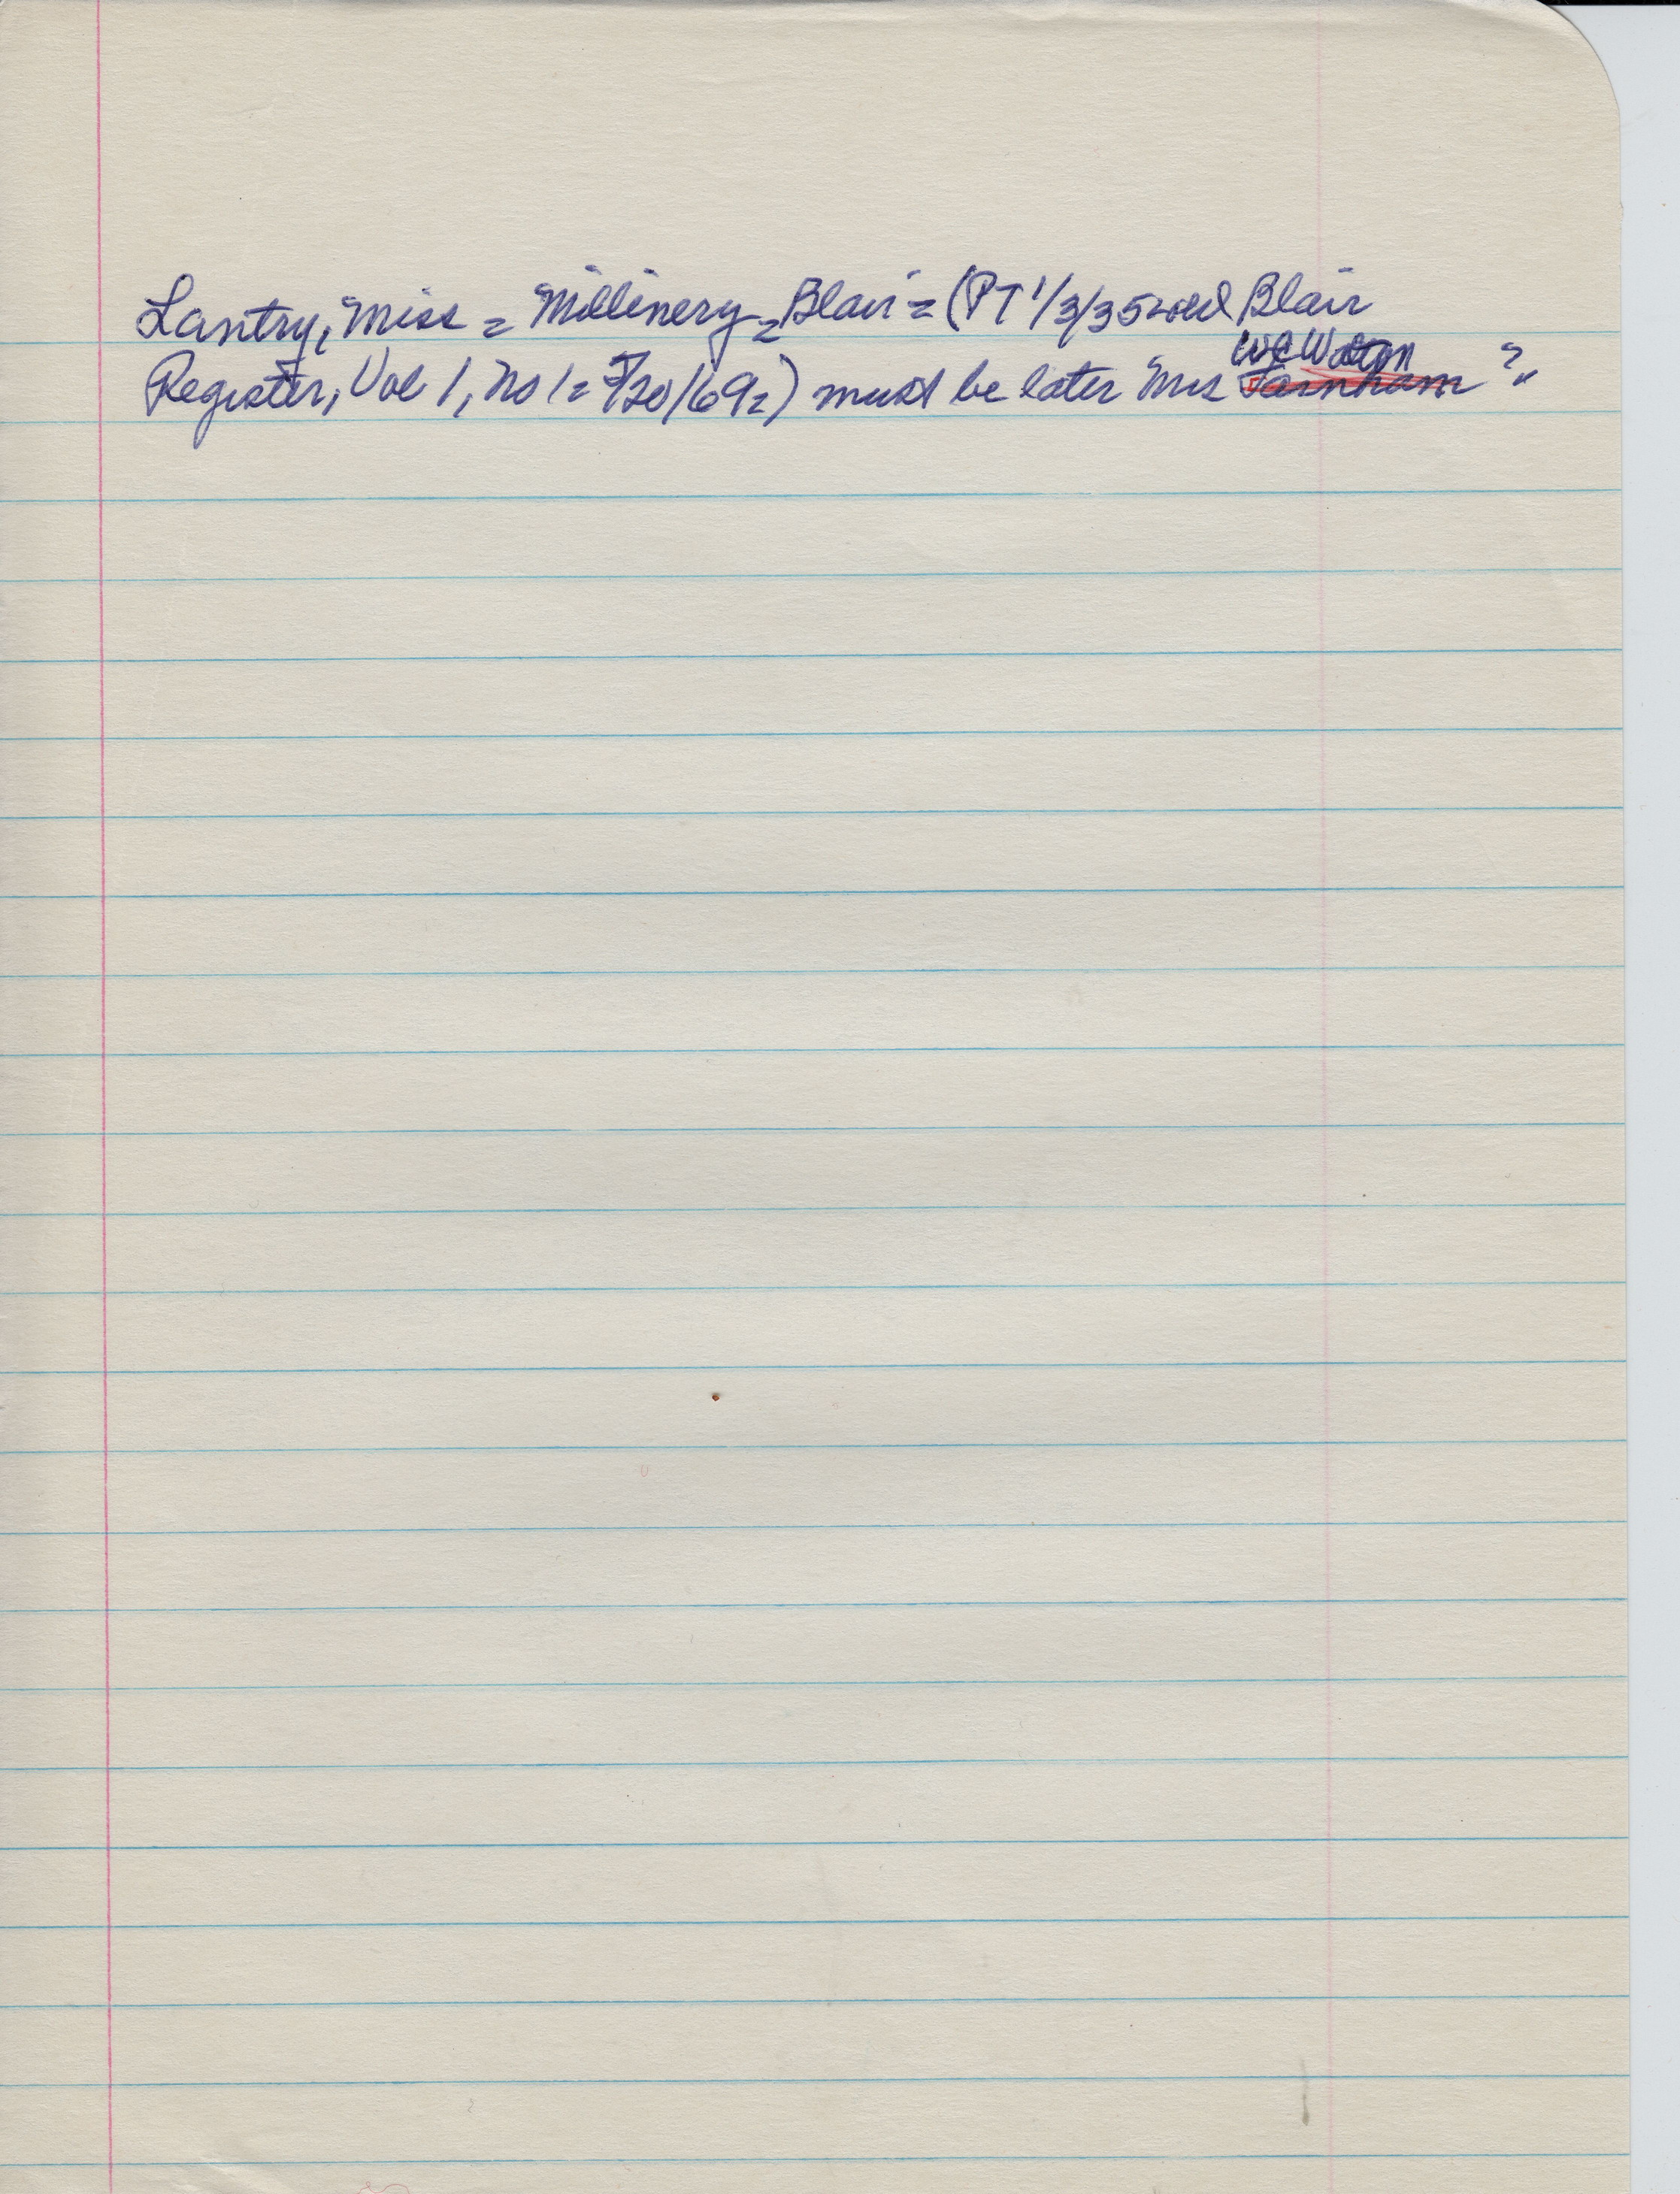 Lantry, Miss = Millinery = Blair = (PT 1/3/35 = old Blair
W C Watson
Register, Vol 1, No 1 = 5/20/69 =) must be later Mrs Farnham ?